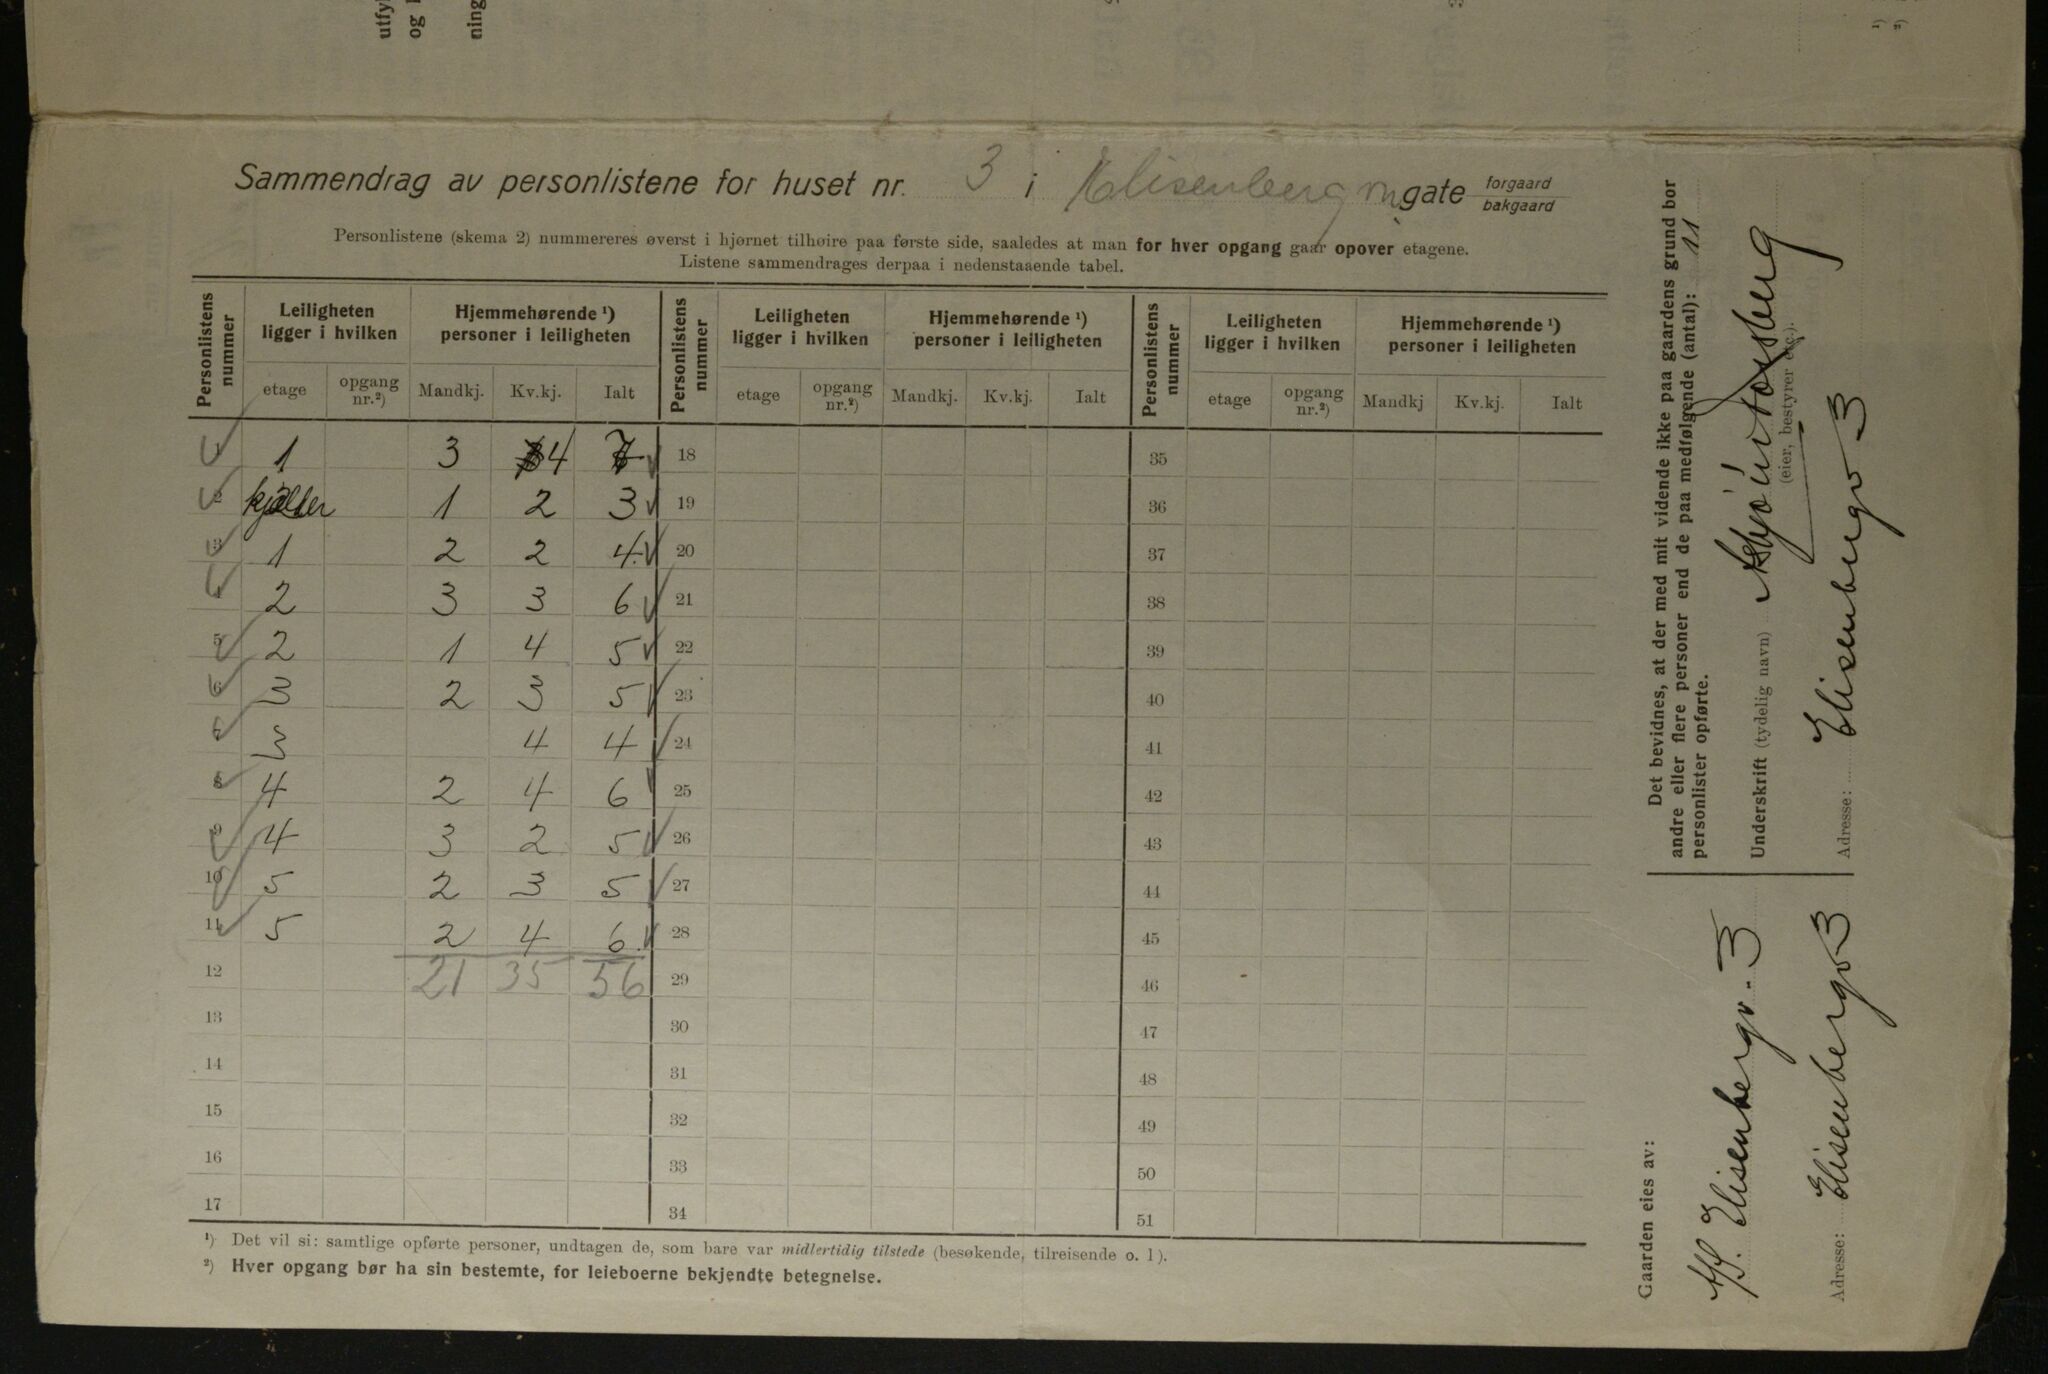 Sammendrag av personlistene for huset nr. 3 i Elisenbergvn. gate forgaard bakgaard
Personlistene (skema 2) nummereres øverst i hjørnet tilhøire paa første side, saaledes at man for hver opgang gaar opover etagene.
Listene sammendrages derpaa i nedenstaaende tabel.
Personlistens nummer | Leiligheten ligger i hvilken | Hjemmehørende ¹) personer i leiligheten | Personlistens nummer | Leiligheten ligger i hvilken | Hjemmehørende ¹) personer i leiligheten | Personlistens nummer | Leiligheten ligger i hvilken | Hjemmehørende ¹) personer i leiligheten
etage | opgang nr.²) | Mandkj. | Kv.kj. | Ialt | etage | opgang nr.²) | Mandkj. | Kv.kj. | Ialt | etage | opgang nr.²) | Mandkj | Kv.kj. | Ialt
1 1 3 4 7 18 35
2 kjelder 1 2 3 19 36
3 1 2 2 4 20 37
4 2 3 3 6 21 38
5 2 1 4 5 22 39
6 3 2 3 5 23 40
7 3 4 4 24 41
8 4 2 4 6 25 42
9 4 3 2 5 26 43
10 5 2 3 5 27 44
11 5 2 4 6 28 45
12 21 35 56 29 46
13 30 47
14 31 48
15 32 49
16 33 50
17 34 51
¹) Det vil si: samtlige opførte personer, undtagen de, som bare var midlertidig tilstede (besøkende, tilreisende o. l).
²) Hver opgang bør ha sin bestemte, for leieboerne bekjendte betegnelse.
Det bevidnes, at der med mit vidende ikke paa gaardens grund bor
andre eller flere personer end de paa medfølgende (antal): 11
personlister opførte.
Underskrift (tydelig navn)
(eier, bestyrer etc.).
Adresse: Elisenbergv 3
Gaarden eies av:
A/S. Elisenbergv. 3
Adresse: Elisenbergv 3
utfyl
og
ning